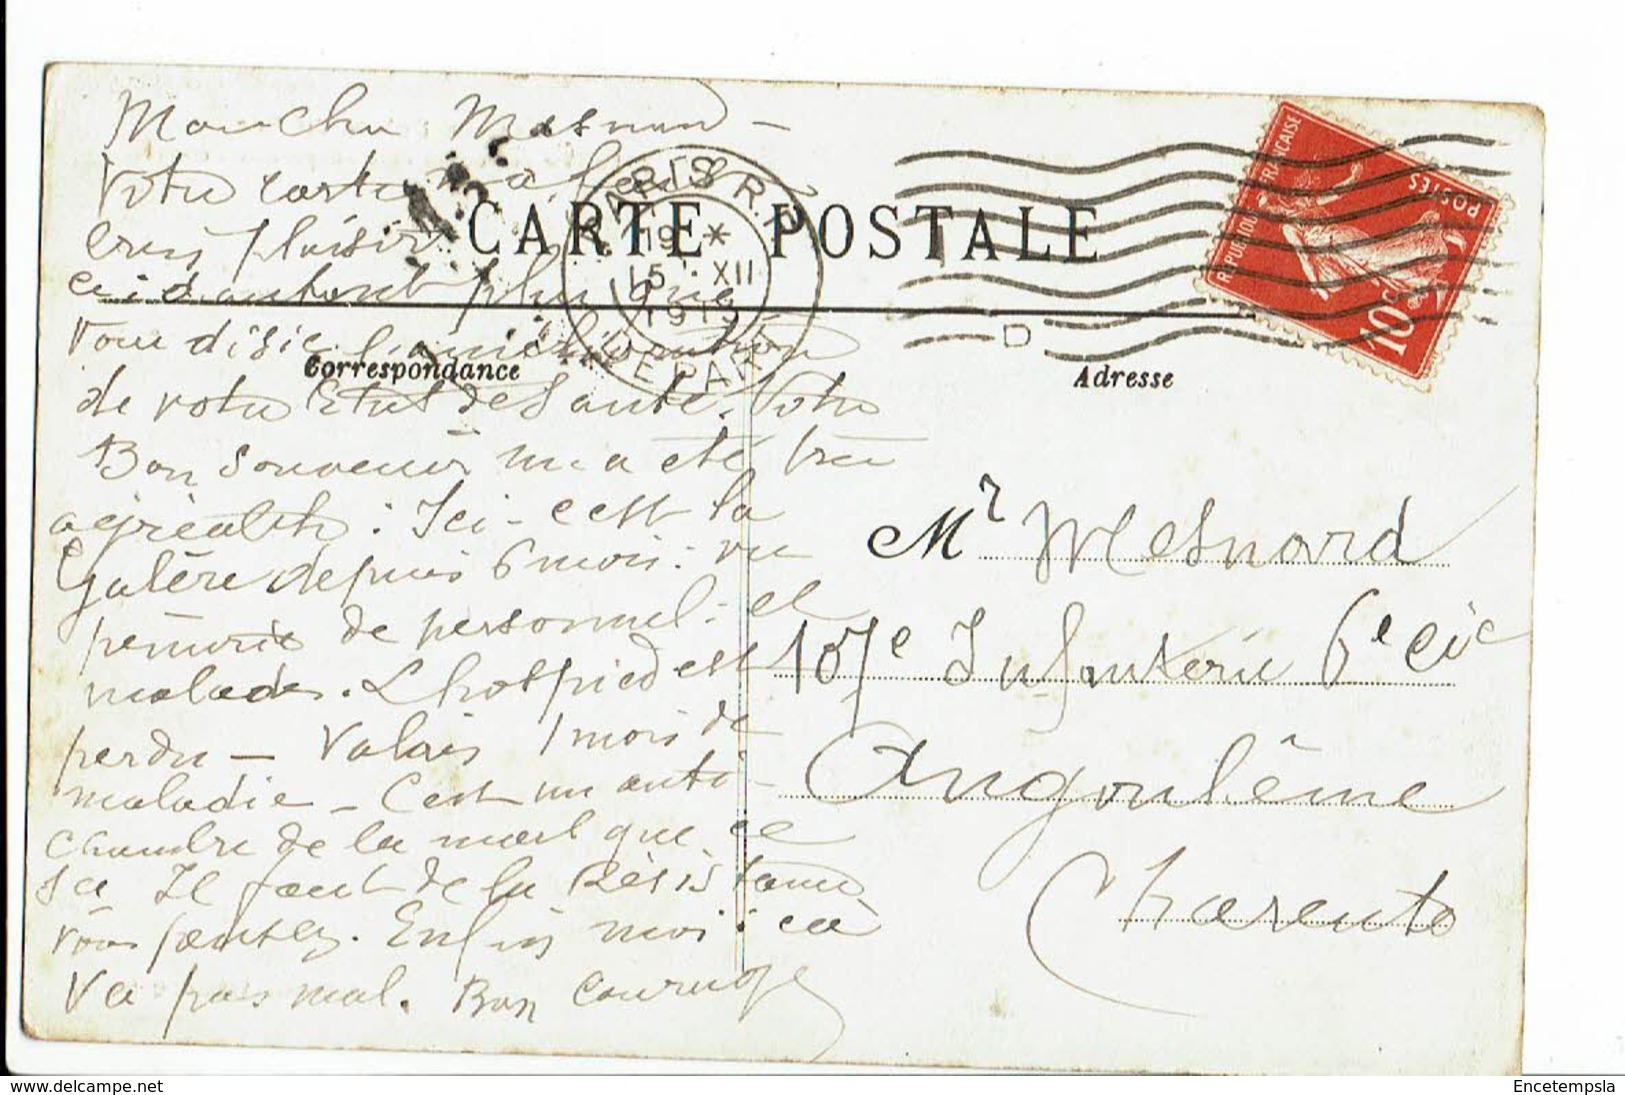 Mon cher Mesnard -
Votre carte m'a fait
CARTE POSTALE
PARIS R.P.
19 *
15 XII
DEPART
RÉPUBLIQUE FRANÇAISE
POSTES
10c
plaisir
ci d'autant plus que
vous disiez l'amélioration
Correspondance
Adresse
de votre Etat de Santé. Votre
Bon souvenir m'a été très
agréable : Ici - c'est la
Galère depuis 6 mois : vu
pénurie de personnel - et
malades. L'hospied est
perdu - Valais 1 mois de
maladie - C'est un anti-
chambre de la mort que ce
Il faut de la Résistance
vous pensez. Enfin moi : ca
va pas mal. Bon courage
Mr Mesnard
107e Infanterie 6e Cie
Angoulême
Charente
Encetempsla